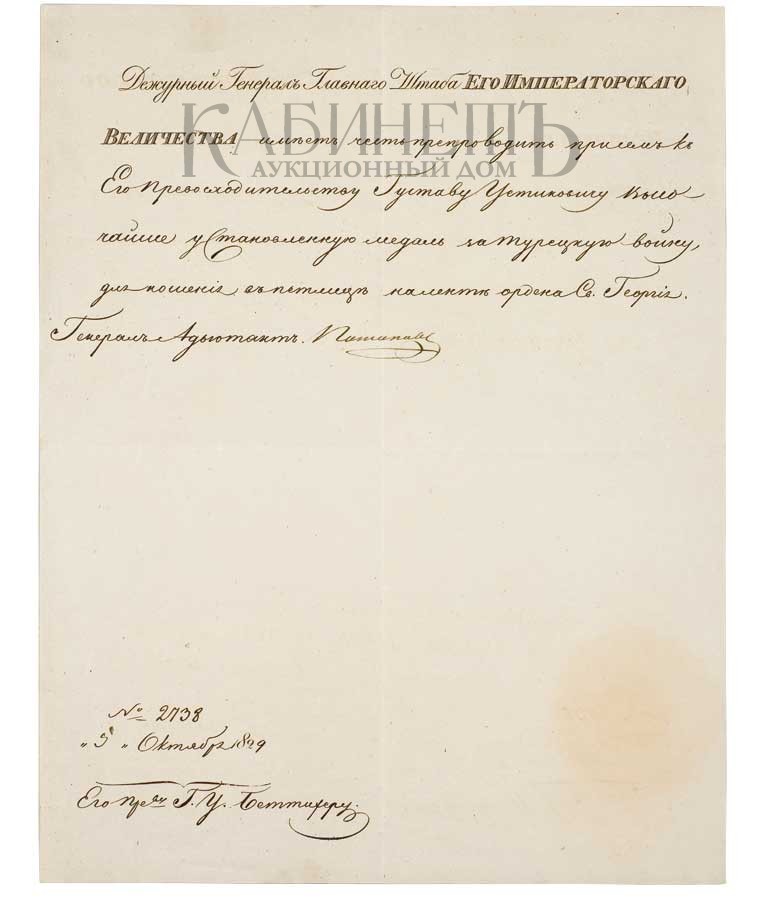 Дежурный Генералъ Главнаго Штаба ЕГО ИМПЕРАТОРСКАГО
КАБИНЕТЪ
АУКЦИОННЫЙ ДОМ
ВЕЛИЧЕСТВА имѣетъ честь препроводить при семъ къ
Его Превосходительству Густаву Устиновичу высо-
чайше установленную медаль за турецкую войну,
для ношенія въ петлицѣ на лентѣ ордена Св. Георгія.
Генералъ Адъютантъ. Потаповъ
№ 2738
"5" Октября 1829
Его Прев. Г. У. Беттихеру.